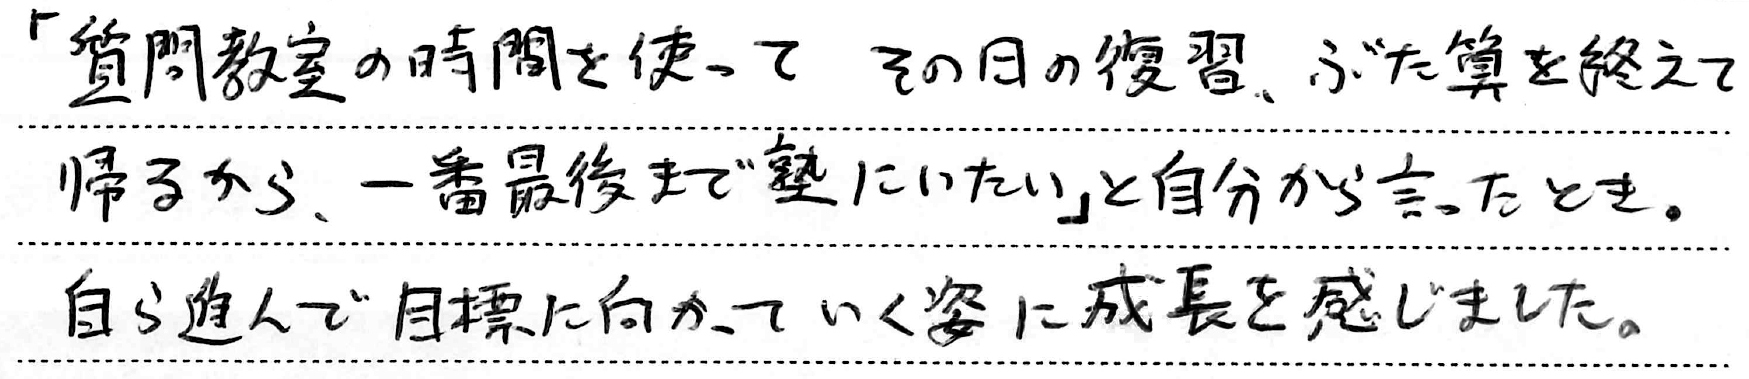 「質問教室の時間を使って その日の復習、ぶた算を終えて
帰るから、一番最後まで塾にいたい」と自分から言ったとき。
自ら進んで目標に向かっていく姿に成長を感じました。